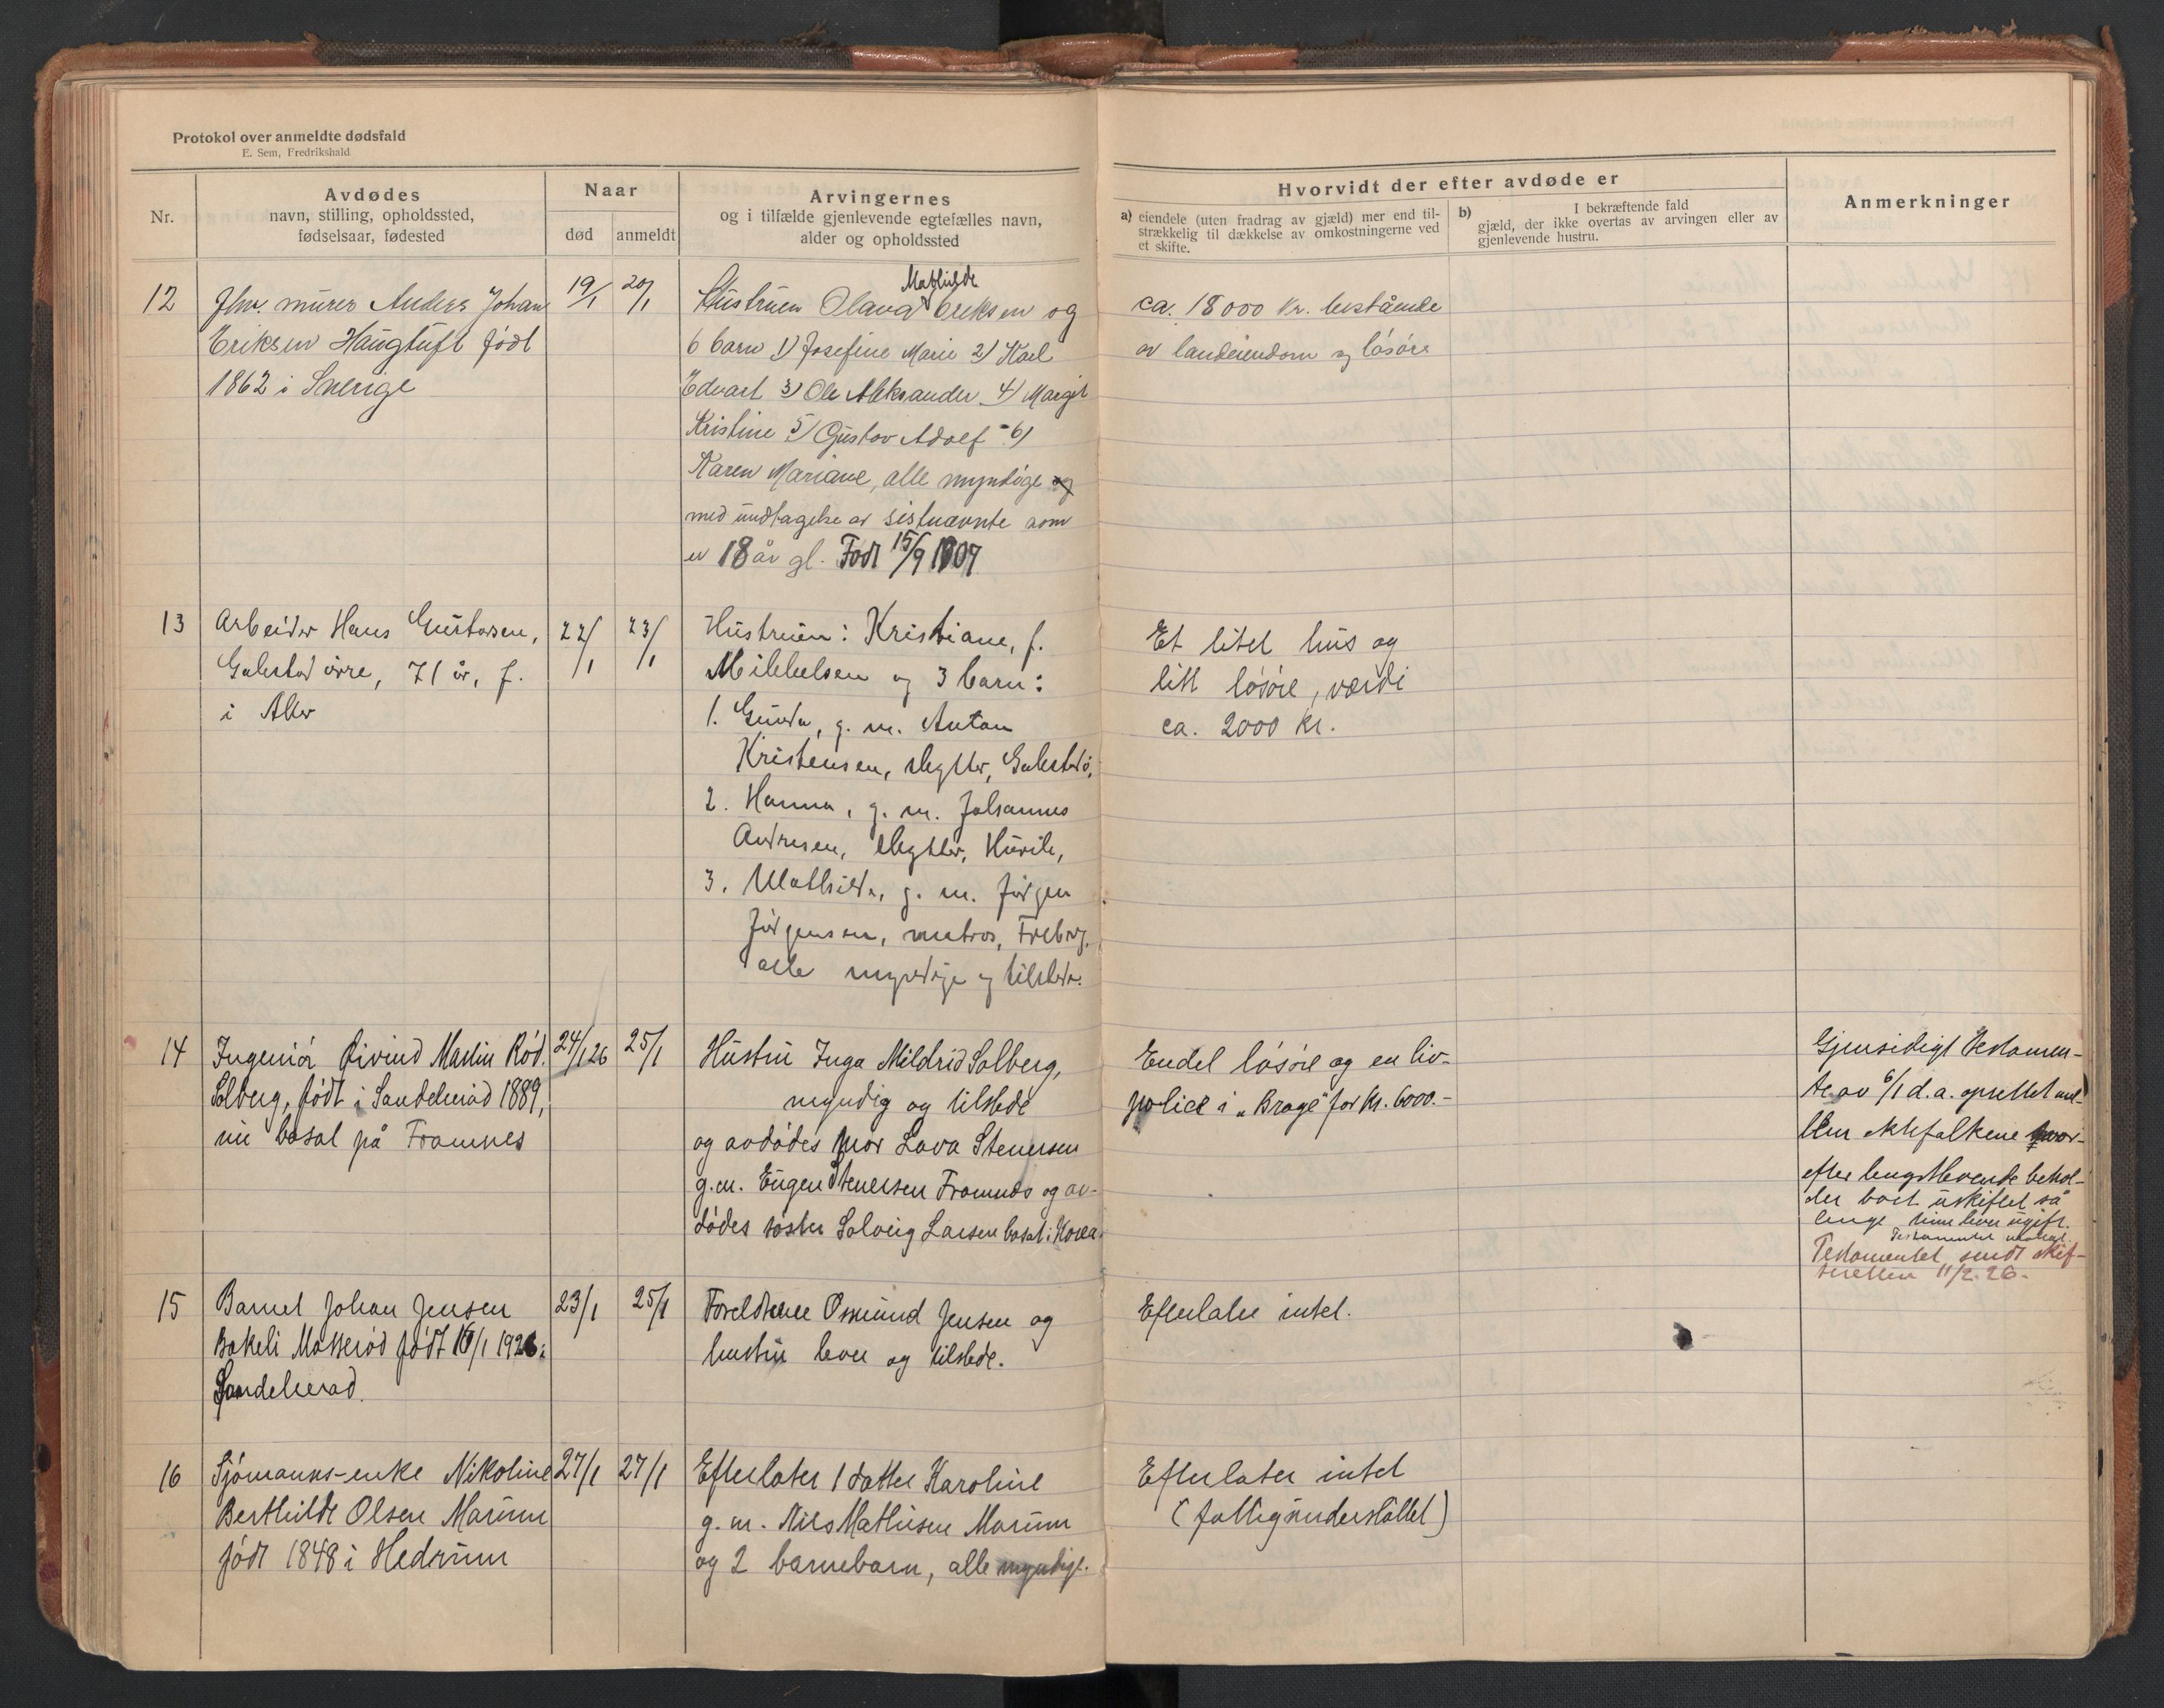 Protokol over anmeldte dødsfald
E. Sem, Fredrikshald
Nr.
Avdødes
navn, stilling, opholdssted,
fødselsaar, fødested
Naar
død
anmeldt
Arvingernes
og i tilfælde gjenlevende egtefælles navn,
alder og opholdssted
Hvorvidt der efter avdøde er
a) eiendele (uten fradrag av gjæld) mer end til-
strækkelig til dækkelse av omkostningerne ved
et skifte.
b) I bekræftende fald
gjæld, der ikke overtas av arvingen eller av
gjenlevende hustru.
Anmerkninger
12
Fhv. murer Anders Johan
Eriksen Haugtuft født
1862 i Sverige
19/1
20/1
Mathilde
Hustruen Olava Eriksen og
6 barn 1) Josefine Marie 2) Karl
Edvart 3) Ole Aleksander 4) Margit
Kristine 5) Gustav Adolf 6)
Karen Mariane, alle myndige og
med undtagelse av sistnævnte som
er 18 år gl. Født 15/9 1907
ca. 18000 Kr. bestående
av landeiendom og løsøre
13
Arbeider Hans Gustavsen,
øvre, 71 år, f.
i
22/1
23/1
Hustruen: Kristiane, f.
Mikkelsen og 3 barn:
1. Gunda, g. m. Anton
Kristensen,
2. Hanna, g. m. Johannes
Andresen,
3. Mathilda, g. m. Jørgen
Jørgensen, matros, Freberg,
alle myndige og tilstede.
Et litet hus og
litt løsøre, værdi
ca. 2000 kr.
14
Ingeniør Øivind Martin Rød
Solberg, født i Sandeherad 1889,
nu bosat på Framnes
24/1 26
25/1
Hustru Inga Mildrid Solberg,
myndig og tilstede
og avdødes mor Lava Stenersen
g.m. Eugen Stenersen Framnes og av-
dødes søster Solveig Larsen bosat i Korea.
Endel løsøre og en liv-
police i "Brage" for Kr. 6000.-
Gjensidigt testamen-
te av 6/1 d.a. oprettet mel-
lem ektefolkene hvor-
efter lengstlevende behol-
der boet uskiftet så
lenge hun lever ugift.
Testamentet
Testamentet sendt skif-
teretten 11/2.26.
15
Barnet Johan Jensen
Bakeli Mosserød født 10/1 1926 i
Sandeherad.
23/1
25/1
Foreldrene Osmund Jensen og
hustru lever og tilstede.
Efterlater intet.
16
Sjømanns-enke Nikoline
Berthilde Olsen Marum
født 1848 i Hedrum
27/1
27/1
Efterlater 1 datter Karoline
g. m. Nils Mathisen Marum
og 2 barnebarn, alle myndige.
Efterlater intet
(fattigunderstøttet)